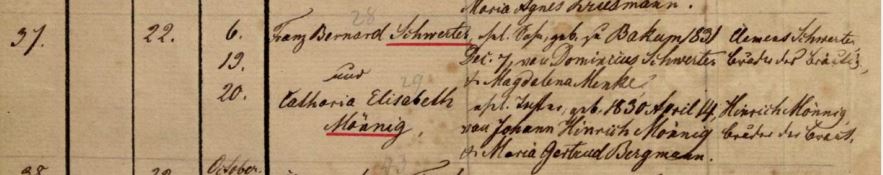 Maria Agnes
28
37. 22. 6. Franz Bernard Schwerter, geb. zu Bakum 1831 Clemens Schwerter
19. Dec. 7, von Dominicus Schwerter Bruder des
und & Magdalena Menke,
29
20. Catharia Elisabeth geb. 1830 April 14, Hinrich Mönnig
Mönnig, von Johann Hinrich Mönnig Bruder der Braut.
& Maria Gertrud Bergmann.
38. 22. October.